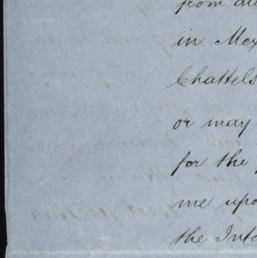 from
in Mex
Chattels
or may
for the
me upo
the Inte